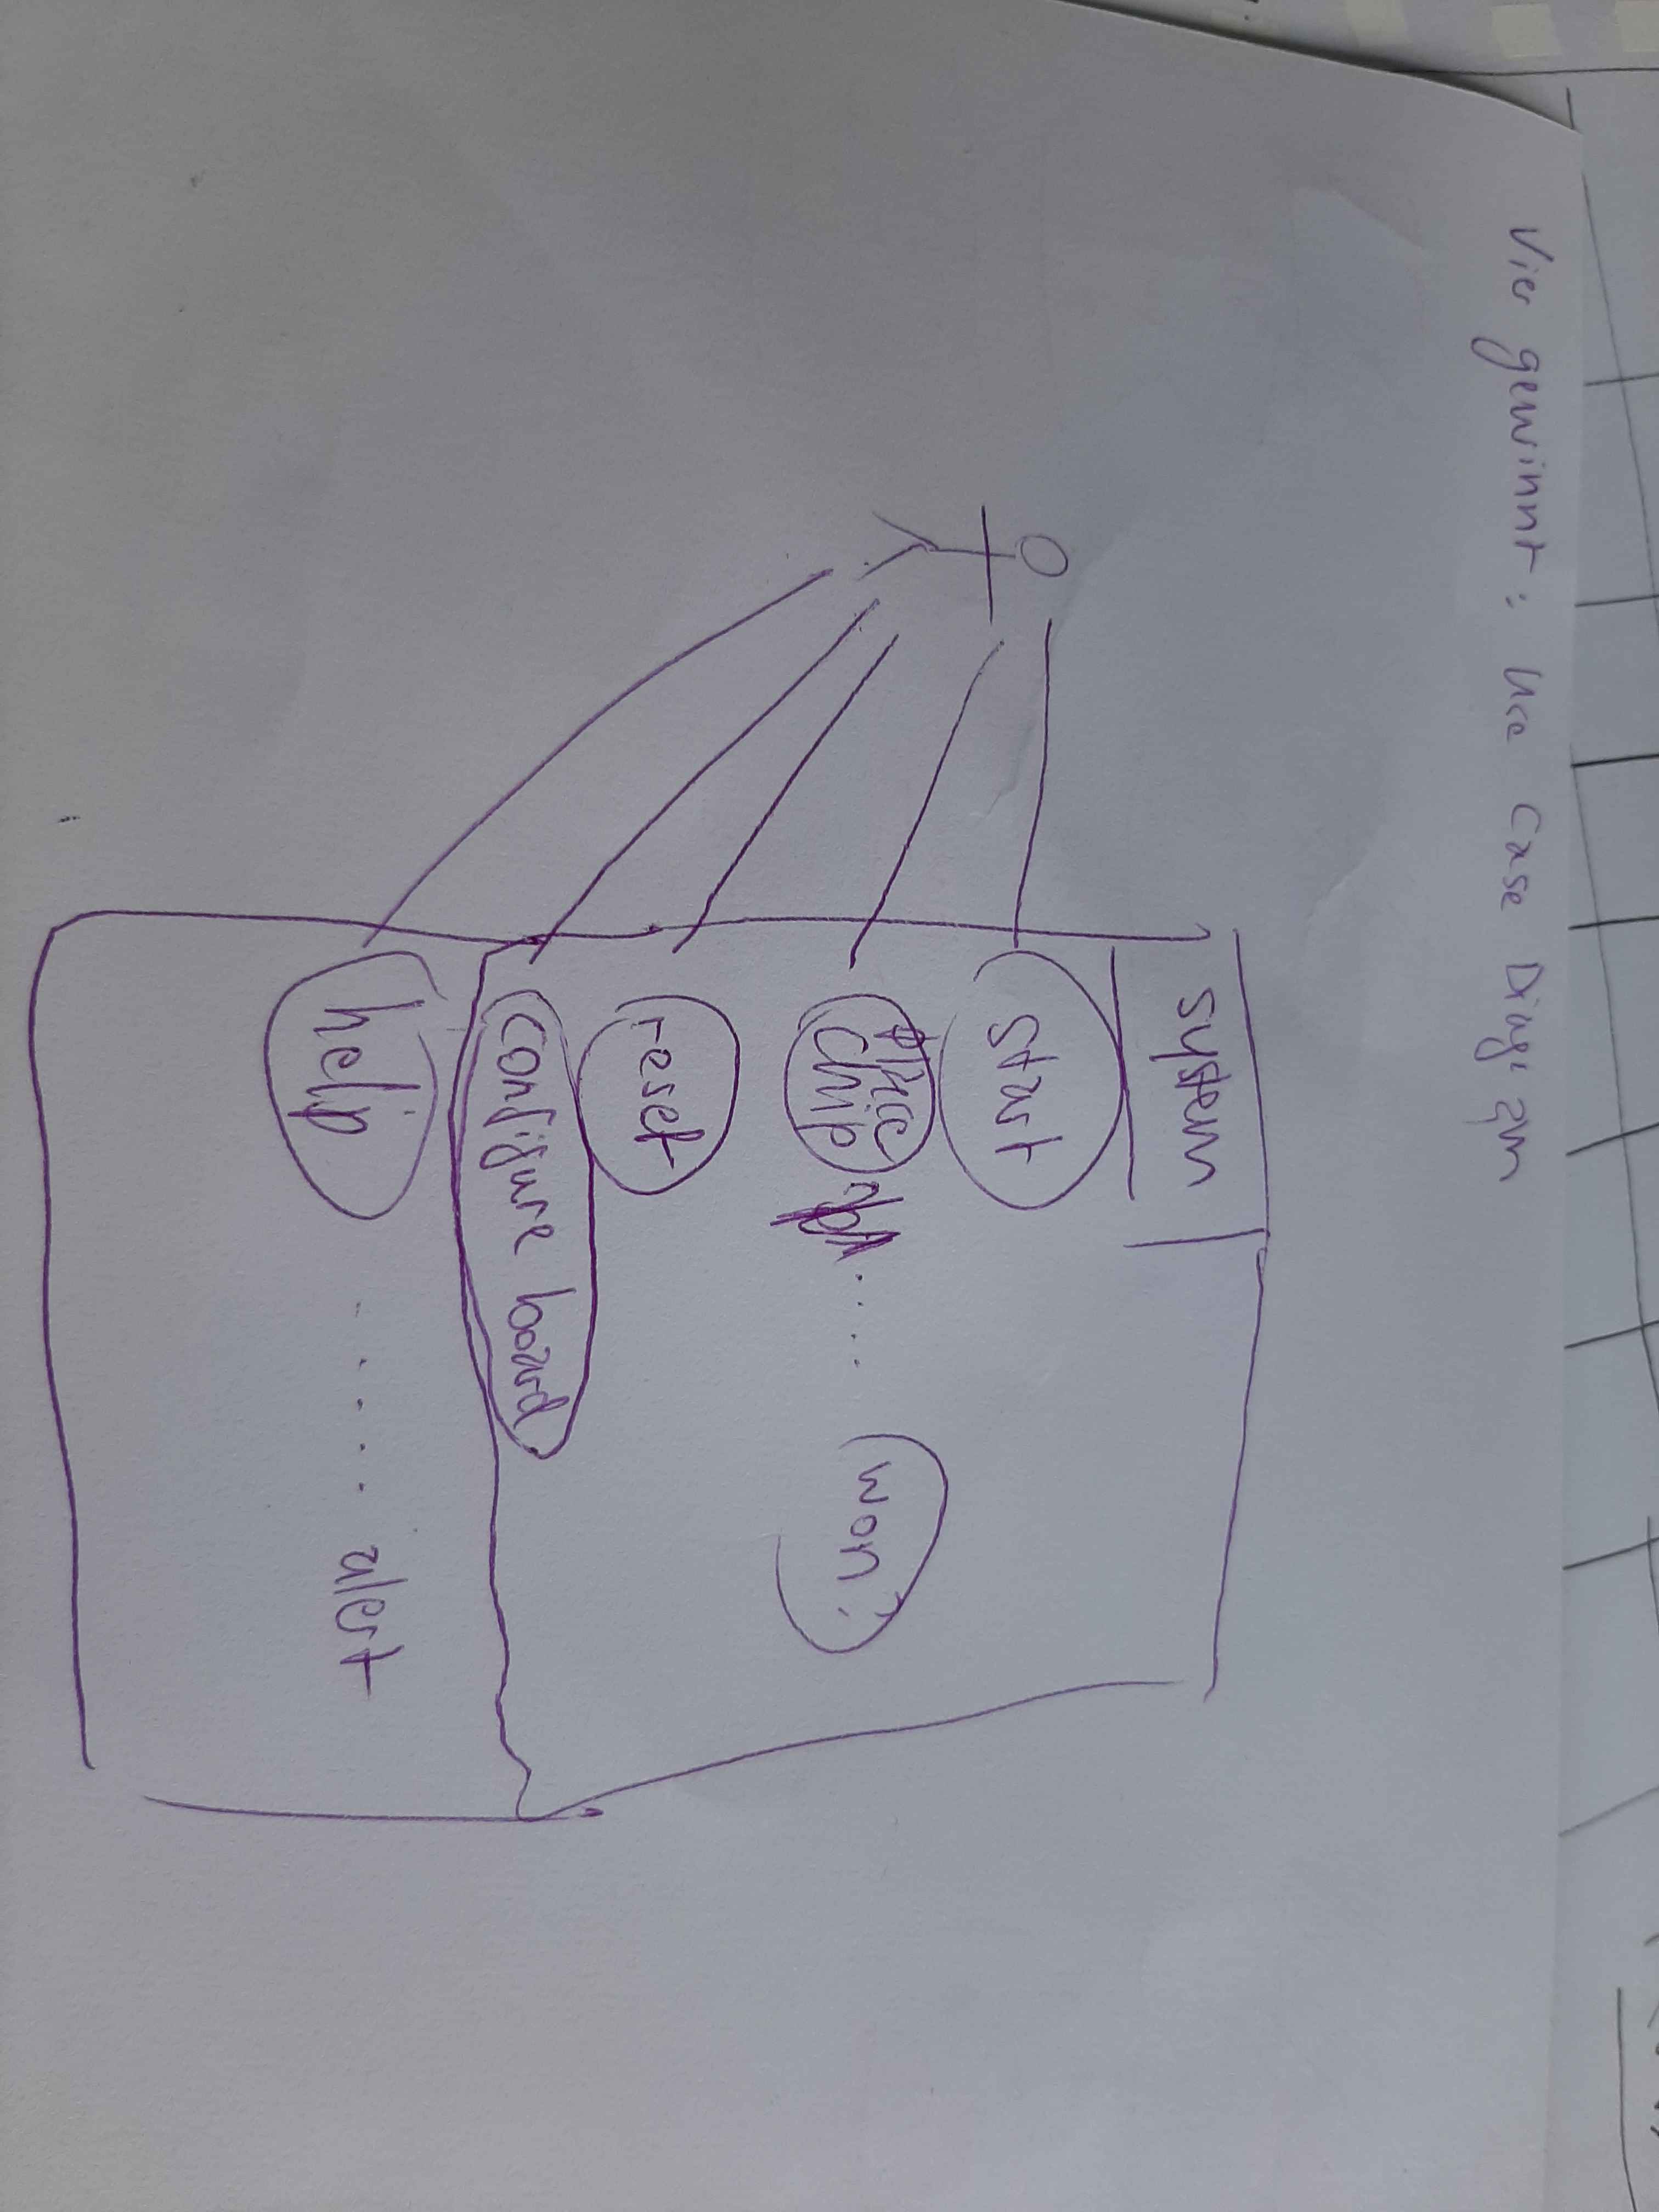 Vier gewinnt: Use Case Diagram
system
start
place
chip
won
reset
configure board
help
alert